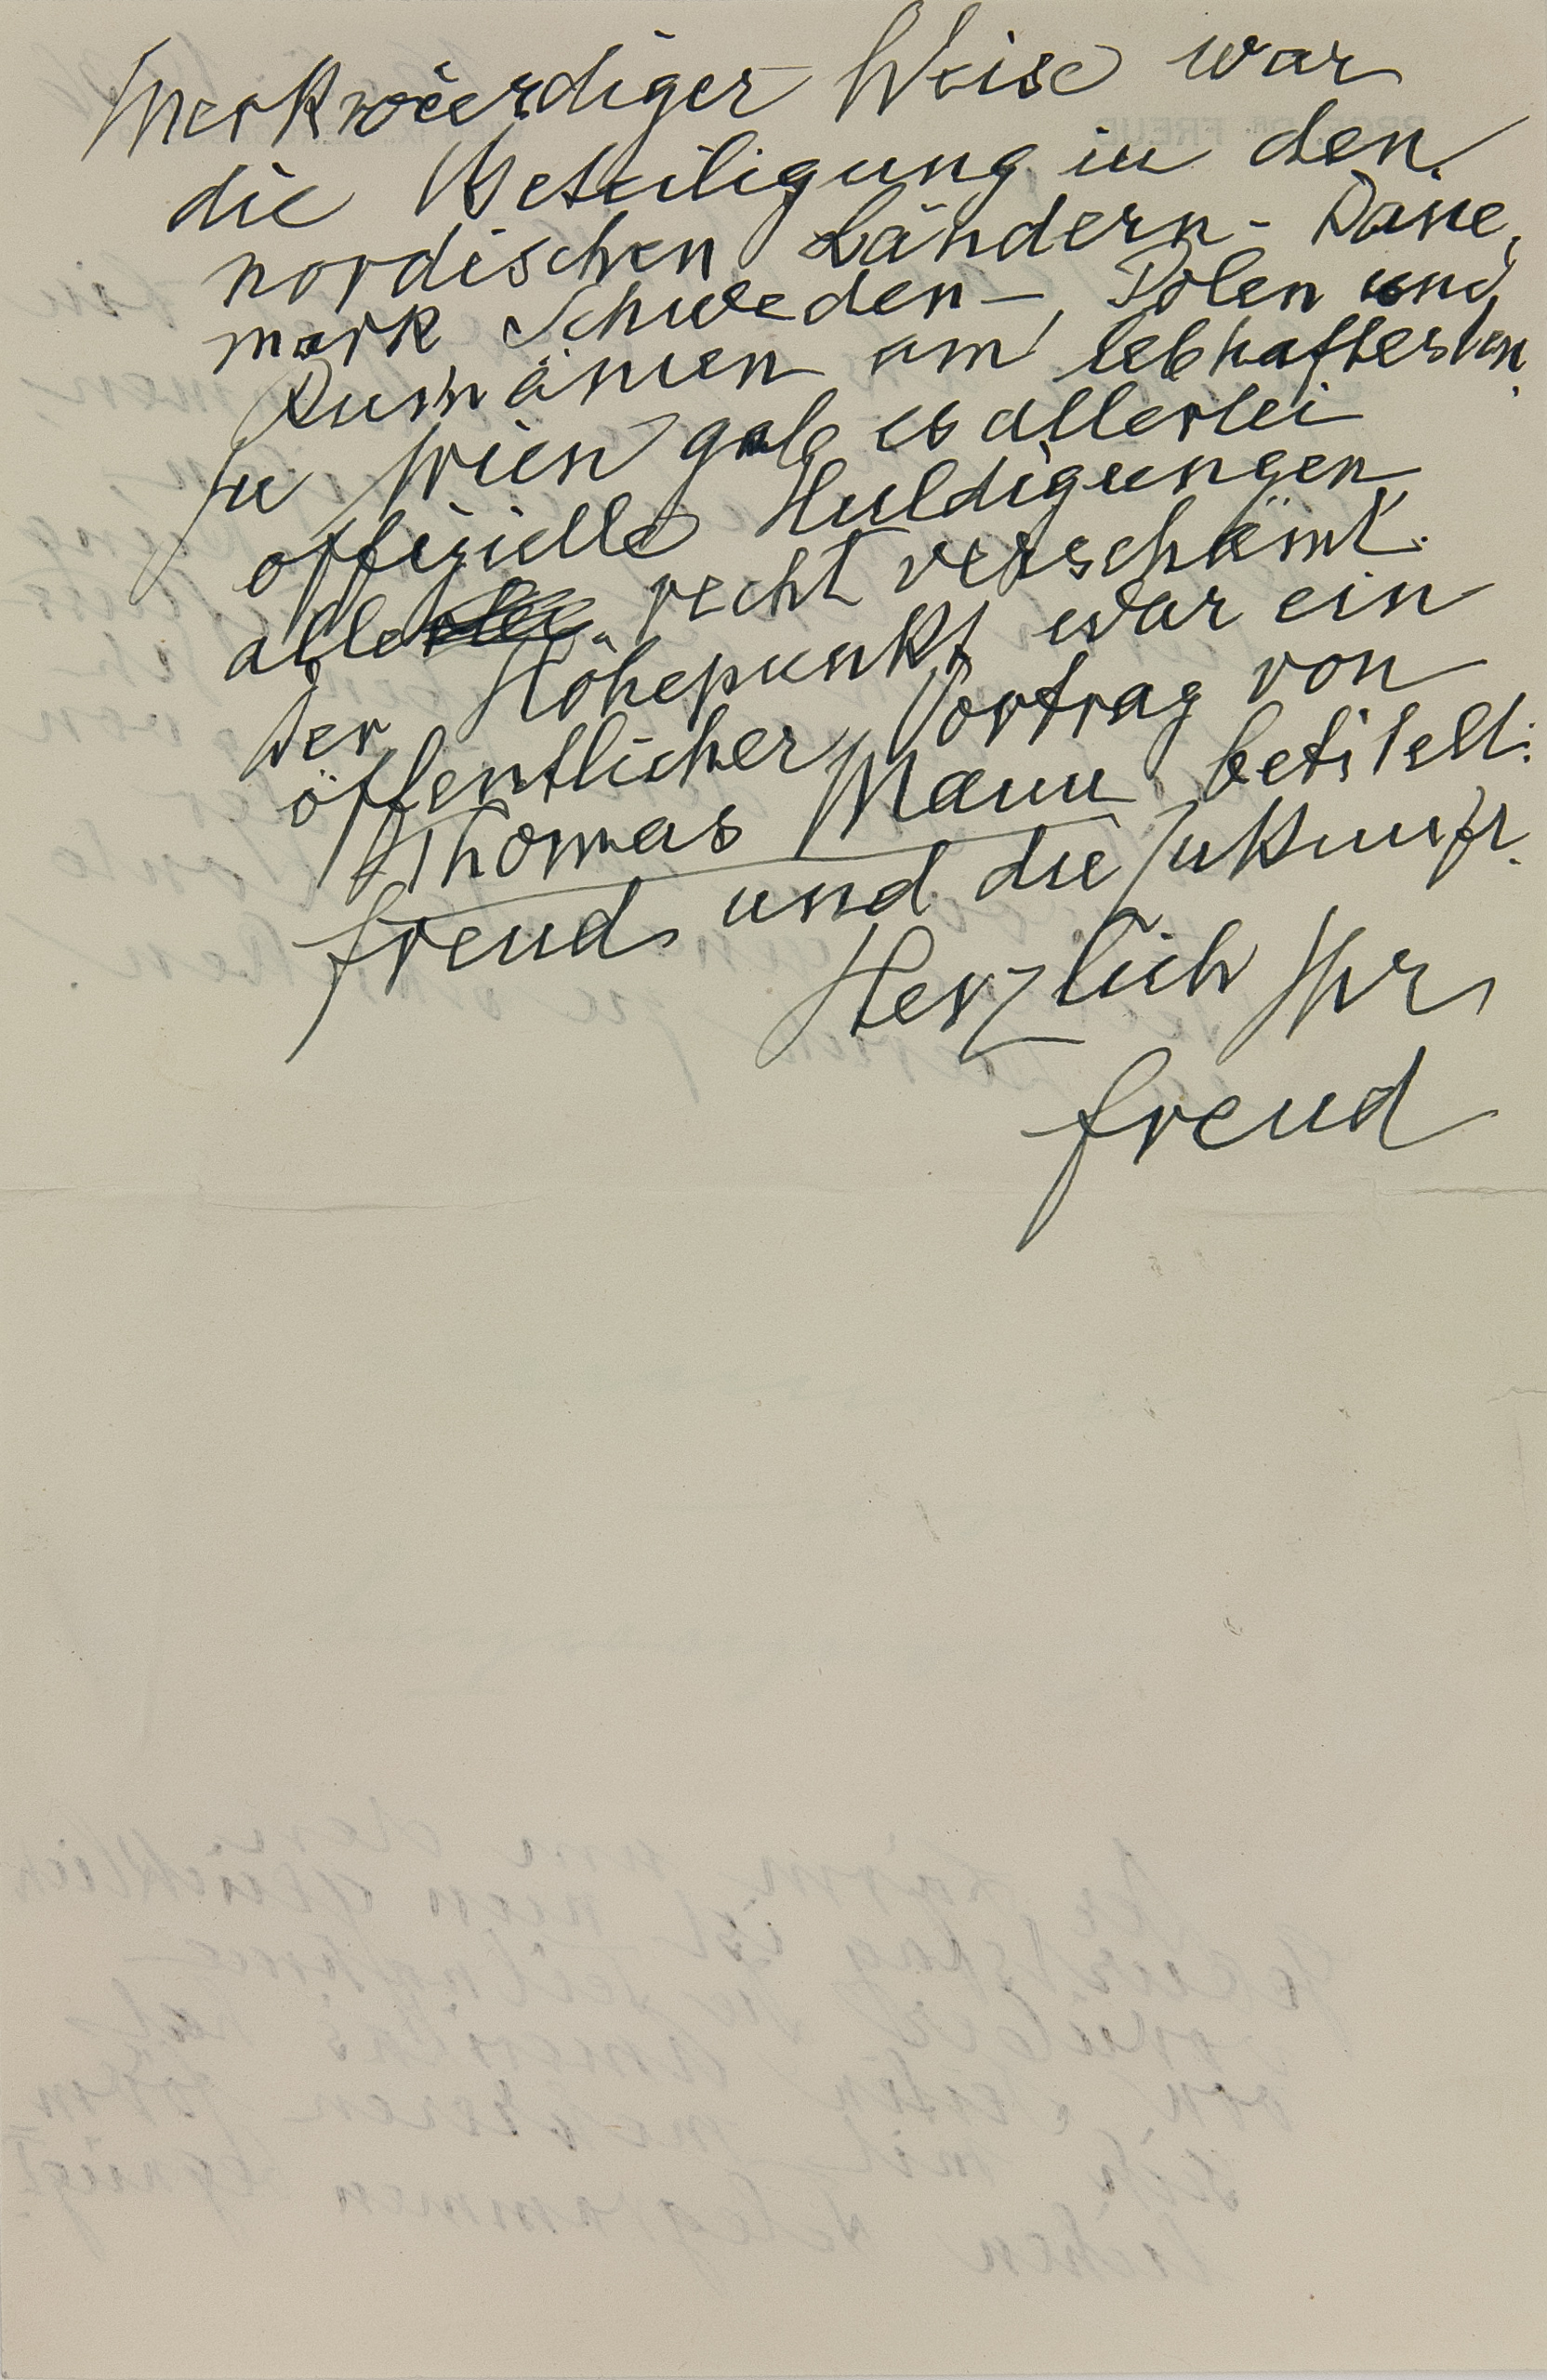 Merkwürdiger Weise war
die Beteiligung in den
nordischen Ländern - Däne,
mark Schweden -, Polen und
Rumänien am lebhaftesten.
In Wien gab es allerlei
offizielle Huldigungen
alle recht verschämt.
Der Höhepunkt war ein
öffentlicher Vortrag von
Thomas Mann betitelt:
Freud und die Zukunft.
Herzlich Ihr
Freud